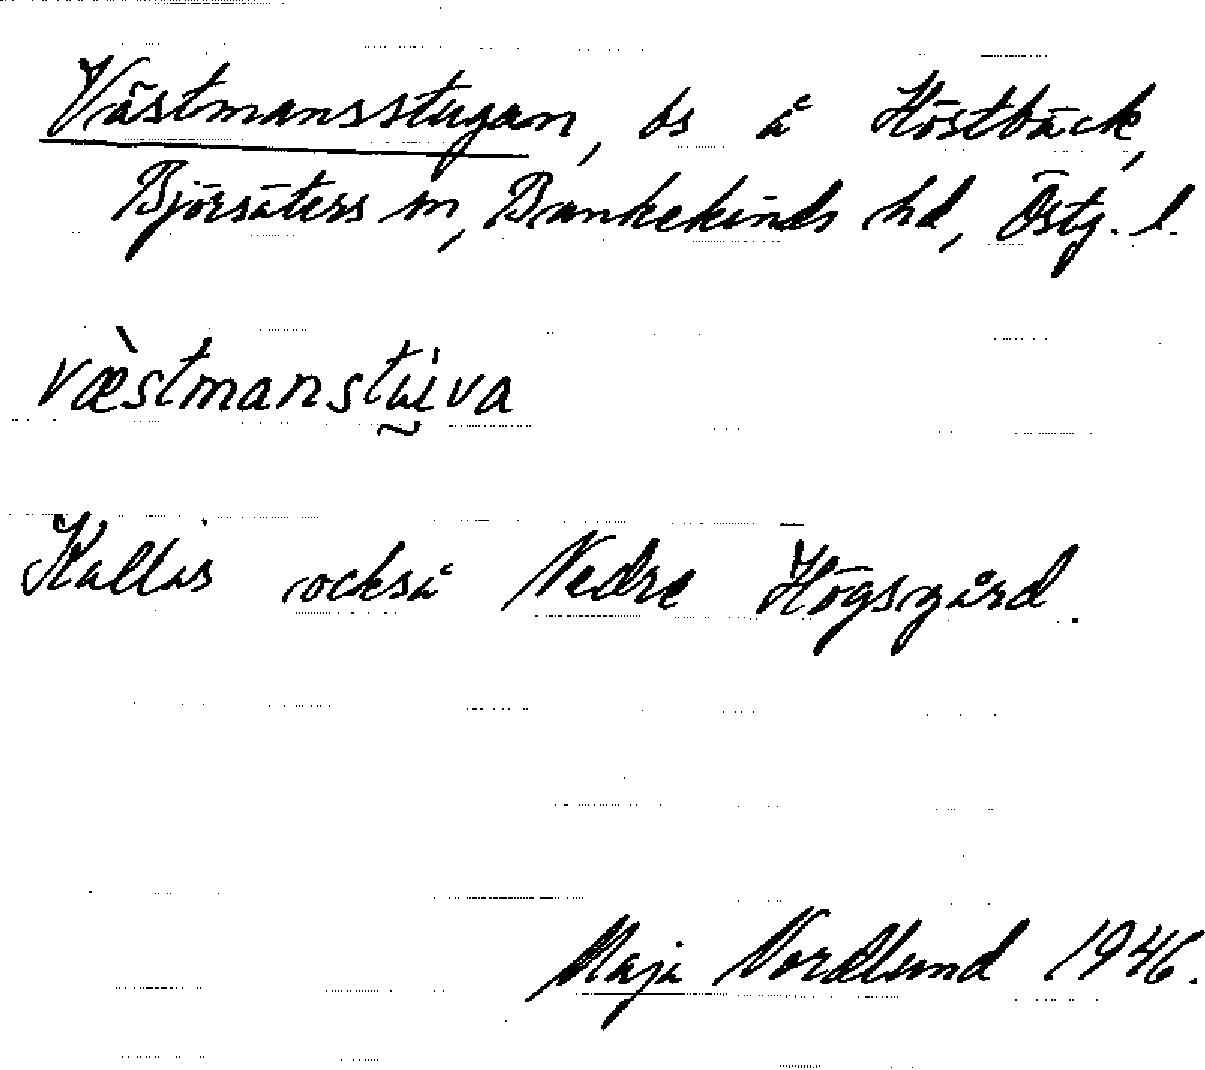 Västmansstugan, bs å Höstbäck,
Björsäters sn, Bankekinds hd, Östg. l.
væ̀stmanstṵiva
Kallas också Nedre Högsgård.
Maja Nordlund 1946.